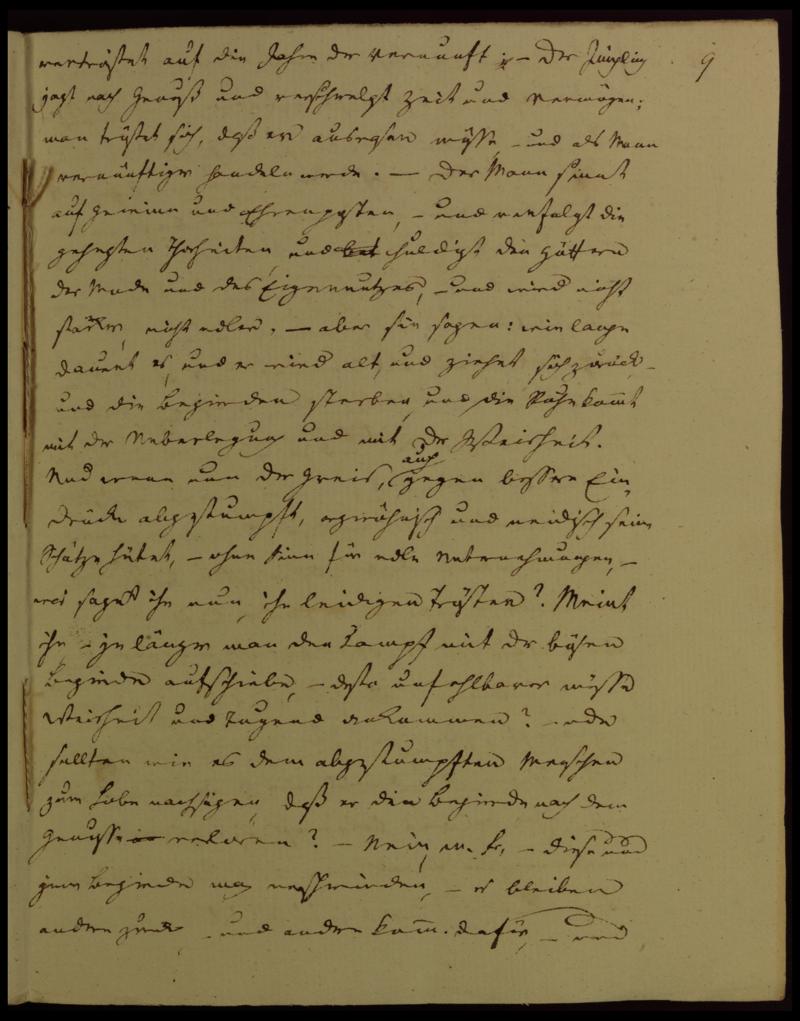 vertröstet auf die Jahre der Vernunft; – Der Jüngling 9
jagt nach Genuß und verschwelgt Zeit und Vermögen;
man tröstet sich, daß er ausrasen müsse, – und als Mann
vernünftiger handeln werde. – Der Mann sinnt
auf Gewinn und Ehrenposten, – und verfolgt die
gehegten Thorheiten, und bet huldigt den Göttern
der Mode und des Eigennutzes, – und wird nicht
stärker, nicht edler. – aber sie sagen: wie lange
dauert es, und er wird alt, und ziehet sich zurück –
und die Begierden sterben, und die Ruhe kommt
mit der Ueberlegung und mit der Weisheit.
Und wenn nun der Greis, auch gegen bessere Ein-
drücke abgestumpft, argwöhnisch und neidisch seine
Schätze hütet, – ohne Sinn für edle Unternehmungen, –
was saget ihr nun, ihr leidigen Tröster? Meint
ihr – je länger man den Kampf mit der bösen
Begierde aufschiebe, – desto unfehlbarer müsse
Weisheit und Tugend ankommen? – oder
sollten wir es dem abgestumpften Menschen
zum Lobe nachsagen, daß er die Begierde nach dem
Genusse verloren? – Nein, m. Br. – diese und
jene Begierde mag verschwinden, – es bleiben
andere zurück – und andere komm. dafür, – und